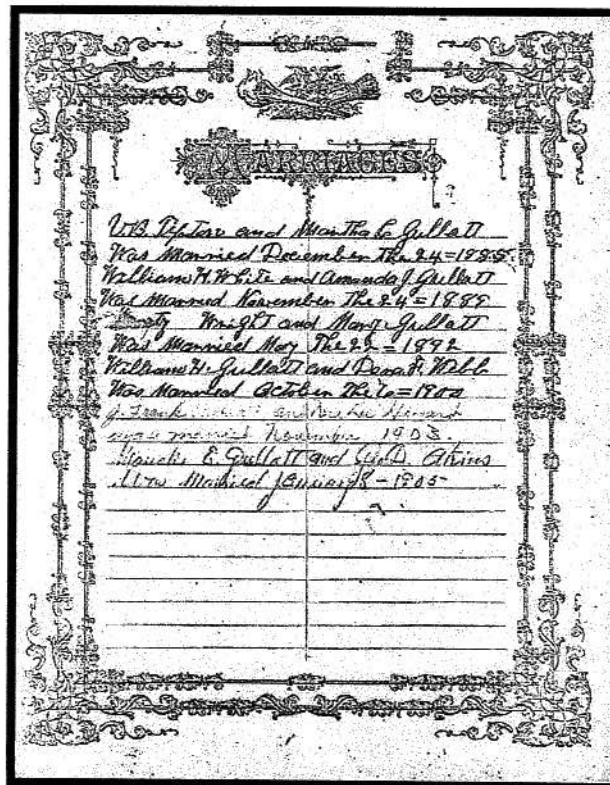 MARRIAGES
W.B. Tipton and Martha C Gullatt
Was Married December the 24=1885
William H. White and Amanda J. Gullatt
Was Married November the 24=1889
Wright and Mary Gullatt
Was Married May The 22=1892
William H. Gullatt and Dora F. Webb
Was Married October The =1900
J. Frank and Howard
was married November 1903
Maudie E. Gullatt and Geo D. Akins
Married January 8-1905